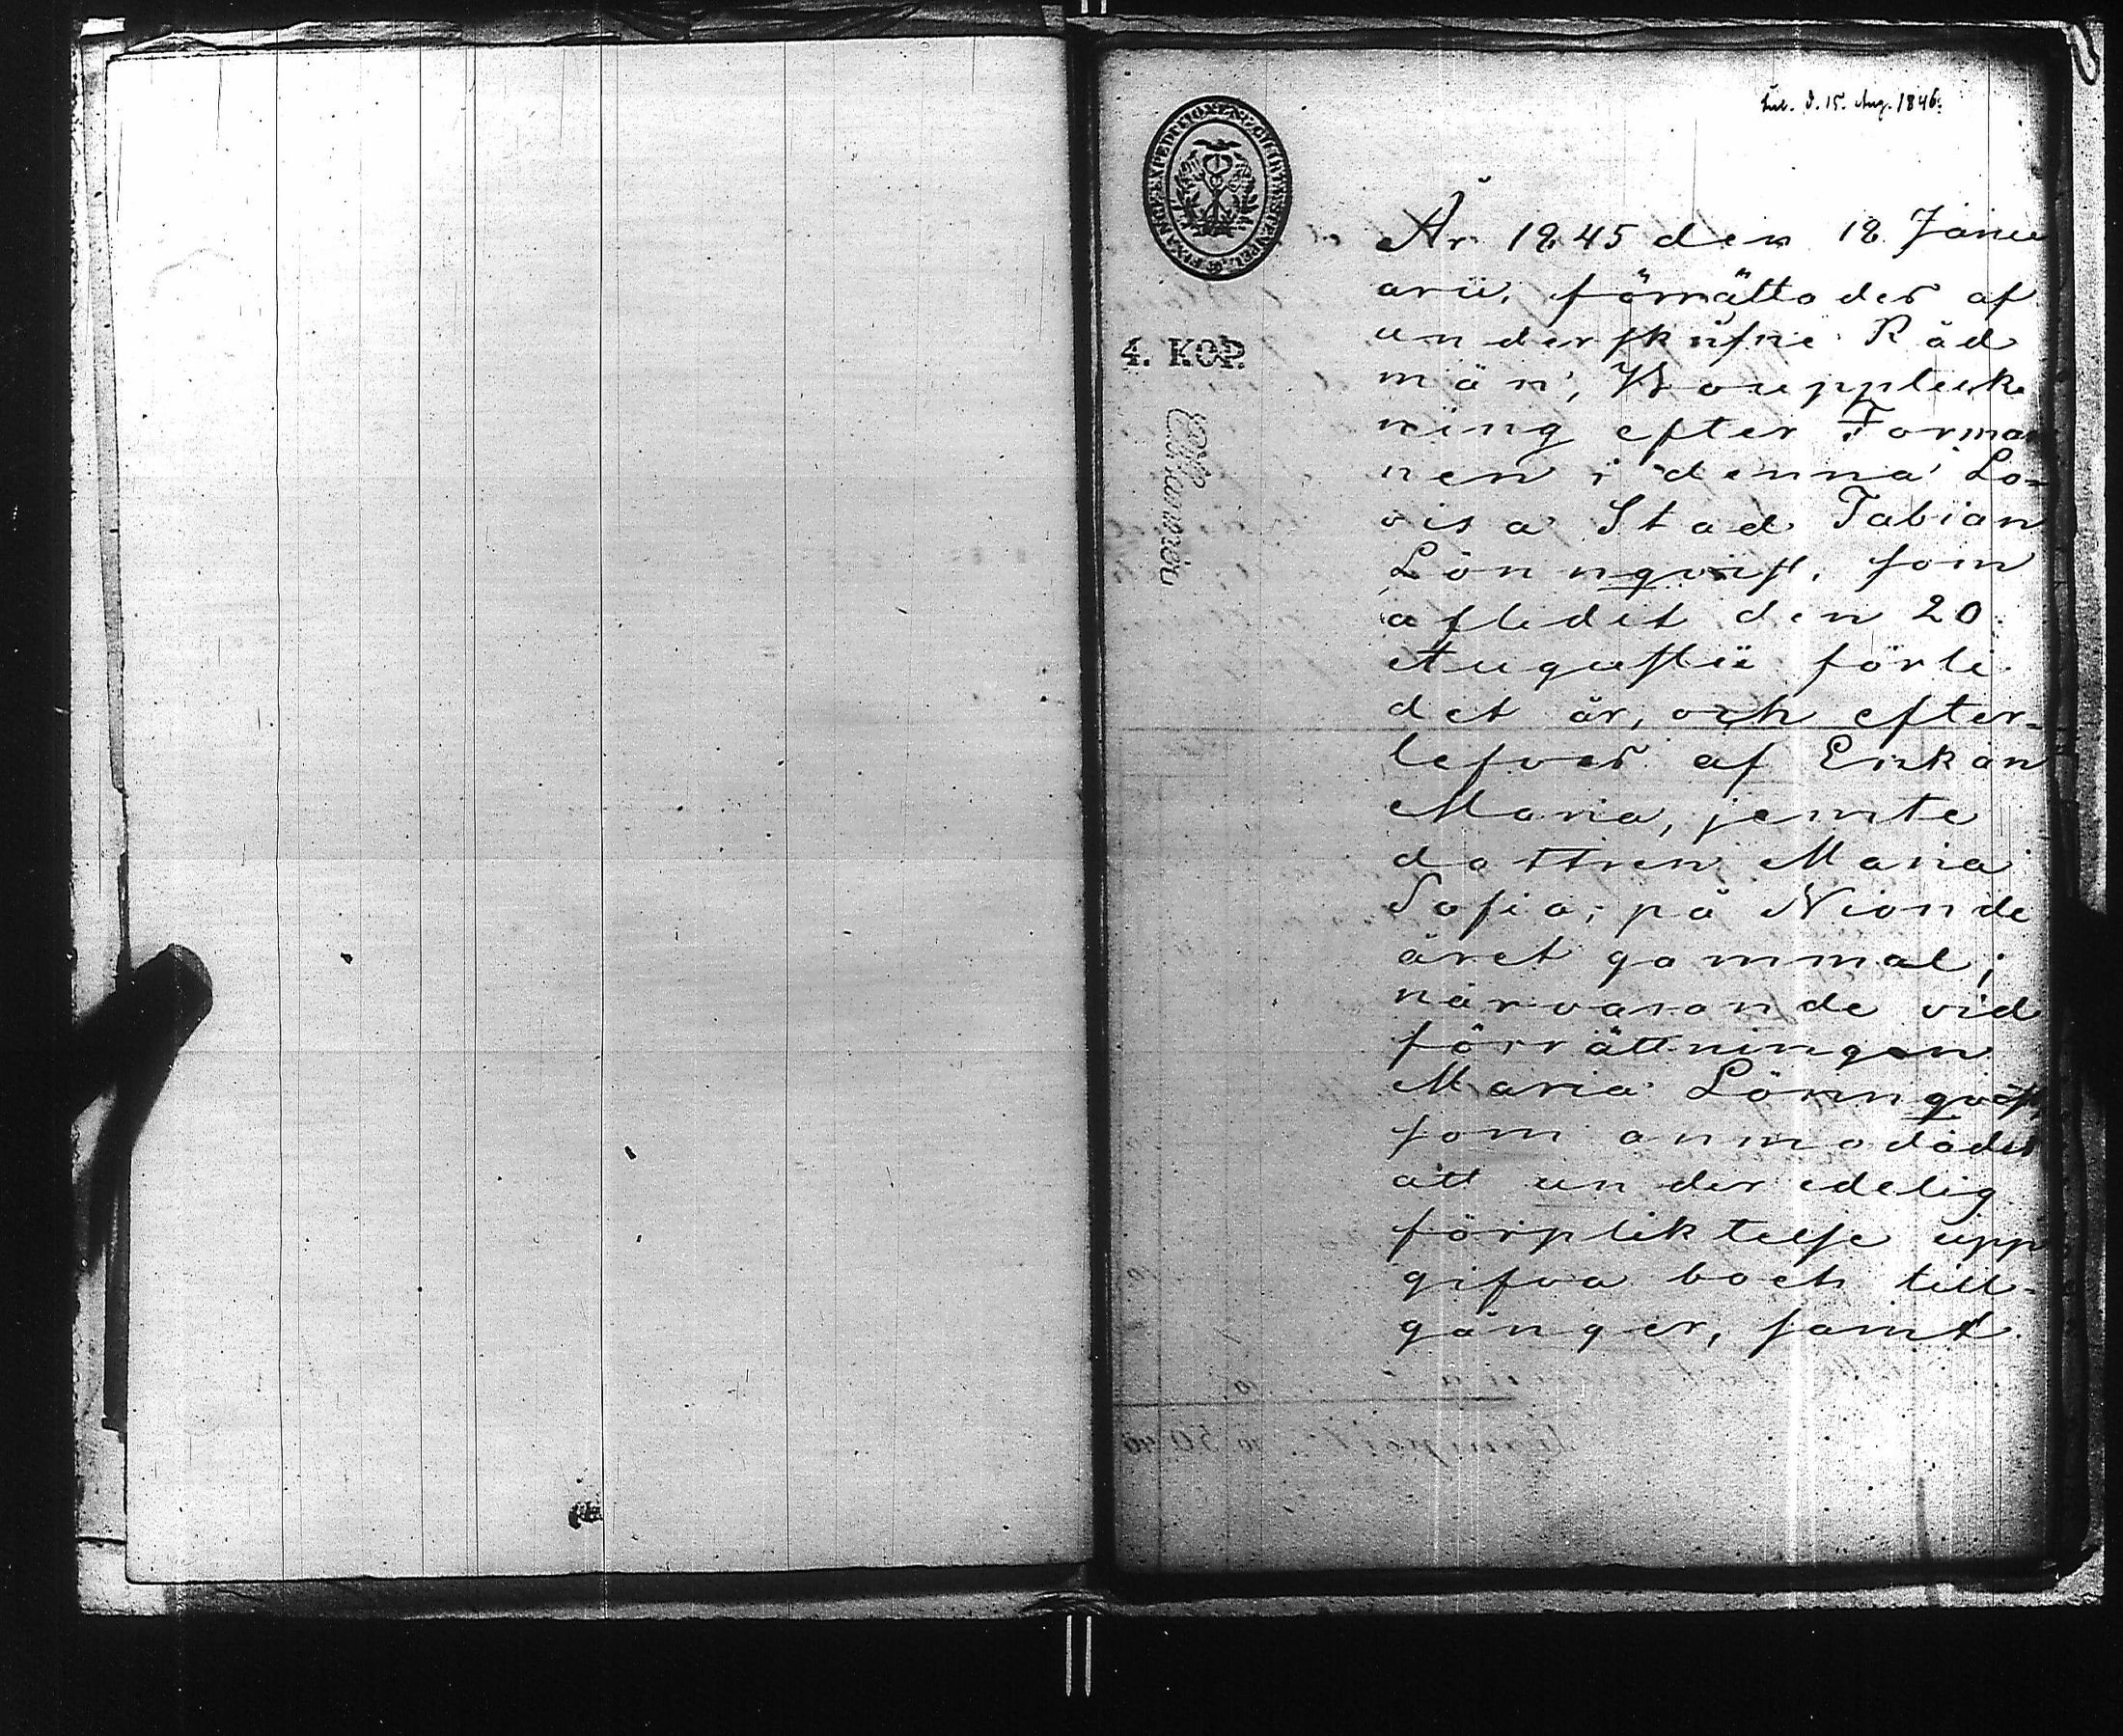 Inl. d. 15. Aug. 1846.
FINANCE EXPEDITIONENS CHARTÆ STEMPEL
4. KOP.
År 1845 den 18 Janu
arii, förrättades af
underskrifne Råd
män, Bouppteck
ning efter Forman
nen i denna Lo-
visa Stad Fabian
Lönnqvist, som
afledit den 20
Augustii förli
det år, och efter-
lefves af Enkan
Maria, jemte
dottren Maria
Sofia, på Nionde
året gammal;
närvarande vid
förrättningen
Maria Lönnqvist,
som anmodades
att under edelig
förpliktelse upp
gifva boets till-
gånger, samt